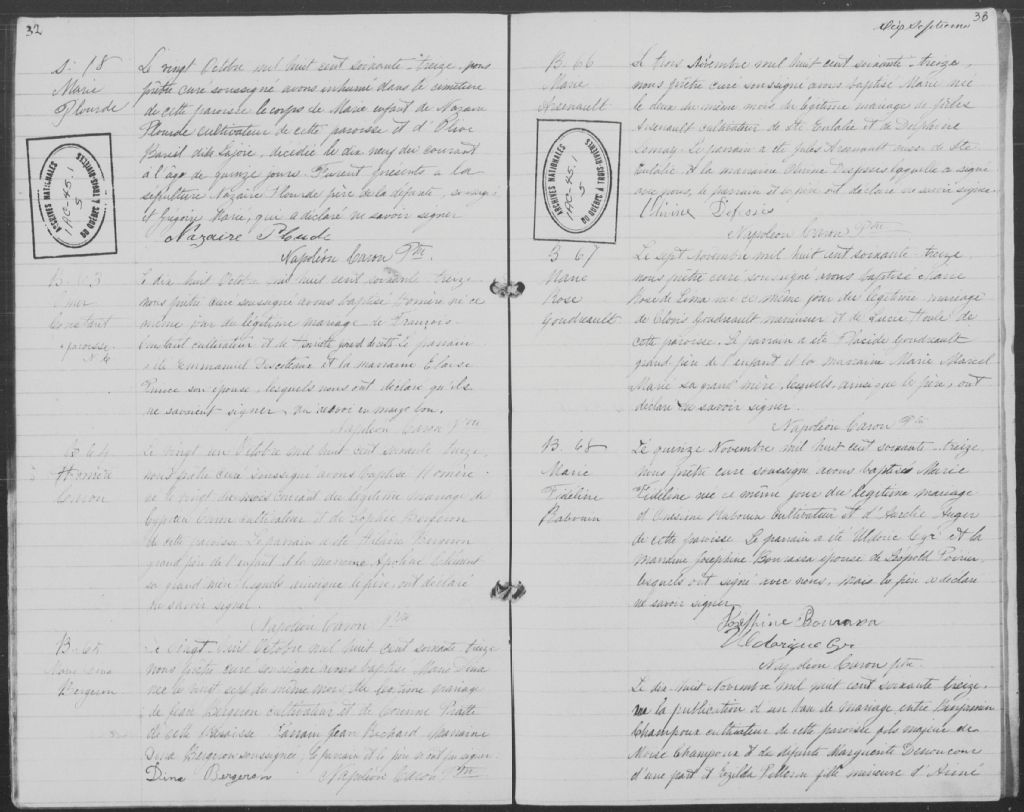 32
S. 18
Marie
Plourde
Le vingt Octobre mil huit cent soixante-treize, nous
prêtre curé soussigné avons inhumé dans le cimetière
de cette paroisse le corps de Marie enfant de Nazaire
Plourde cultivateur de cette paroisse et d'Olive
Bareil dite Lajoie, décédée le dix neuf du courant
à l'âge de quinze jours. Furent présents à la
sépulture Nazaire Plourde père de la défunte,
et Grégoire Harie, qui a déclaré ne savoir signer
Nazaire Plude
Napoléon Caron Ptre.
ARCHIVES NATIONALES
DU QUÉBEC À TROIS-RIVIÈRES
1AC-45.1
5
B. 63
Constant
Le dix huit Octobre mil huit cent soixante treize
nous prêtre curé soussigné avons baptisé né ce
même jour du légitime mariage de François
Constant cultivateur et de Le parrain
a été Emmanuel Descoteaux et la marraine Eloise
Prince son épouse, lesquels nous ont déclaré qu'ils
ne savaient signer. un renvoi en marge bon.
Napoléon Caron Ptre
B 64
Homère
Caron
Le vingt un Octobre mil huit cent soixante treize,
nous prêtre curé soussigné avons baptisé Homère
né le vingt du mois courant du légitime mariage de
Caron cultivateur et de Sophie Bergeron
de cette paroisse. Le parrain a été Hilaire Bergeron
grand père de l'enfant et la marraine, Apoline Clément
sa grand mère lesquels ainsi que le père, ont déclaré
ne savoir signer.
Napoléon Caron Ptre
B. 65
Marie Dina
Bergeron
Le vingt huit Octobre mil huit cent soixante treize
nous prêtre curé soussigné avons baptisé Marie Dina
née le vingt sept du même mois du légitime mariage
de Jean Bergeron cultivateur et de Corinne
de cette Paroisse Parrain Jean Richard, Marraine
Dina Bergeron soussignée, le parrain et le père n'ont pas signé
Dina Bergeron Napoléon Caron Ptre
33
Dix Septième
B. 66
Marie
Arsenault
Le trois Novembre mil huit cent soixante-treize,
nous prêtre curé soussigné avons baptisé Marie née
le deux du même mois du légitime mariage de Jules
Arsenault cultivateur de Ste Eulalie et de Delphine
Lemay. Le parrain a été Jules Arsenault aussi de Ste
Eulalie et la marraine laquelle a signé
avec nous, le parrain et le père ont déclaré ne savoir signer.
Napoléon Caron Ptre
ARCHIVES NATIONALES
DU QUÉBEC À TROIS-RIVIÈRES
1AC-45.1
5
B 67
Marie
Rose
Goudreault
Le sept Novembre mil huit cent soixante-treize
nous prêtre curé soussigné avons baptisé Marie
Rose de Lima née ce même jour du légitime mariage
de Clovis Goudreault menuisier et de Lucie Houle de
cette paroisse. Le parrain a été Placide Goudreault
grand père de l'enfant et la marraine Marie Marcel
Marié sa grand mère, lesquels, ainsi que le père, ont
déclaré ne savoir signer.
Napoléon Caron Ptre
B. 68
Marie
Fidéline
Rabouin
Le quinze Novembre mil huit cent soixante-treize,
nous prêtre curé soussigné avons baptisé Marie
Fidéline née ce même jour du légitime mariage
d'Onésime Rabouin cultivateur et d'Aurélie Auger
de cette paroisse. Le parrain a été Uldéric Cyr et la
marraine Joséphine Bourassa épouse de Léopold Poirier,
lesquels ont signé avec nous, mais le père a déclaré
ne savoir signer
Joséphine Bourassa
Uldorique Cyr
Napoléon Caron ptre.
Le dix-huit Novembre mil huit cent soixante treize,
vu la publication d'un ban de mariage entre Benjamin
Champoux cultivateur de cette paroisse fils majeur de
Moïse Champoux et de défunte Marguerite
d'une part et Exzilda Pellerin fille mineure d'Aimé